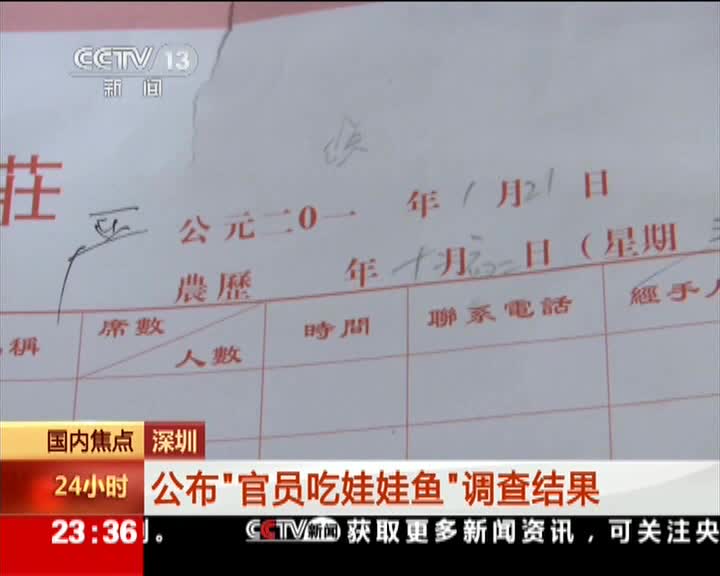 CCTV 13
新闻
莊
公元二0一 年 1 月 21 日
農歷 年 十 月 日 (星期
稱 席數 人數 時間 聯系電話 經手人
国内焦点 深圳
24小时 公布"官员吃娃娃鱼"调查结果
23:36 。 CCTV新闻 获取更多新闻资讯，可关注央